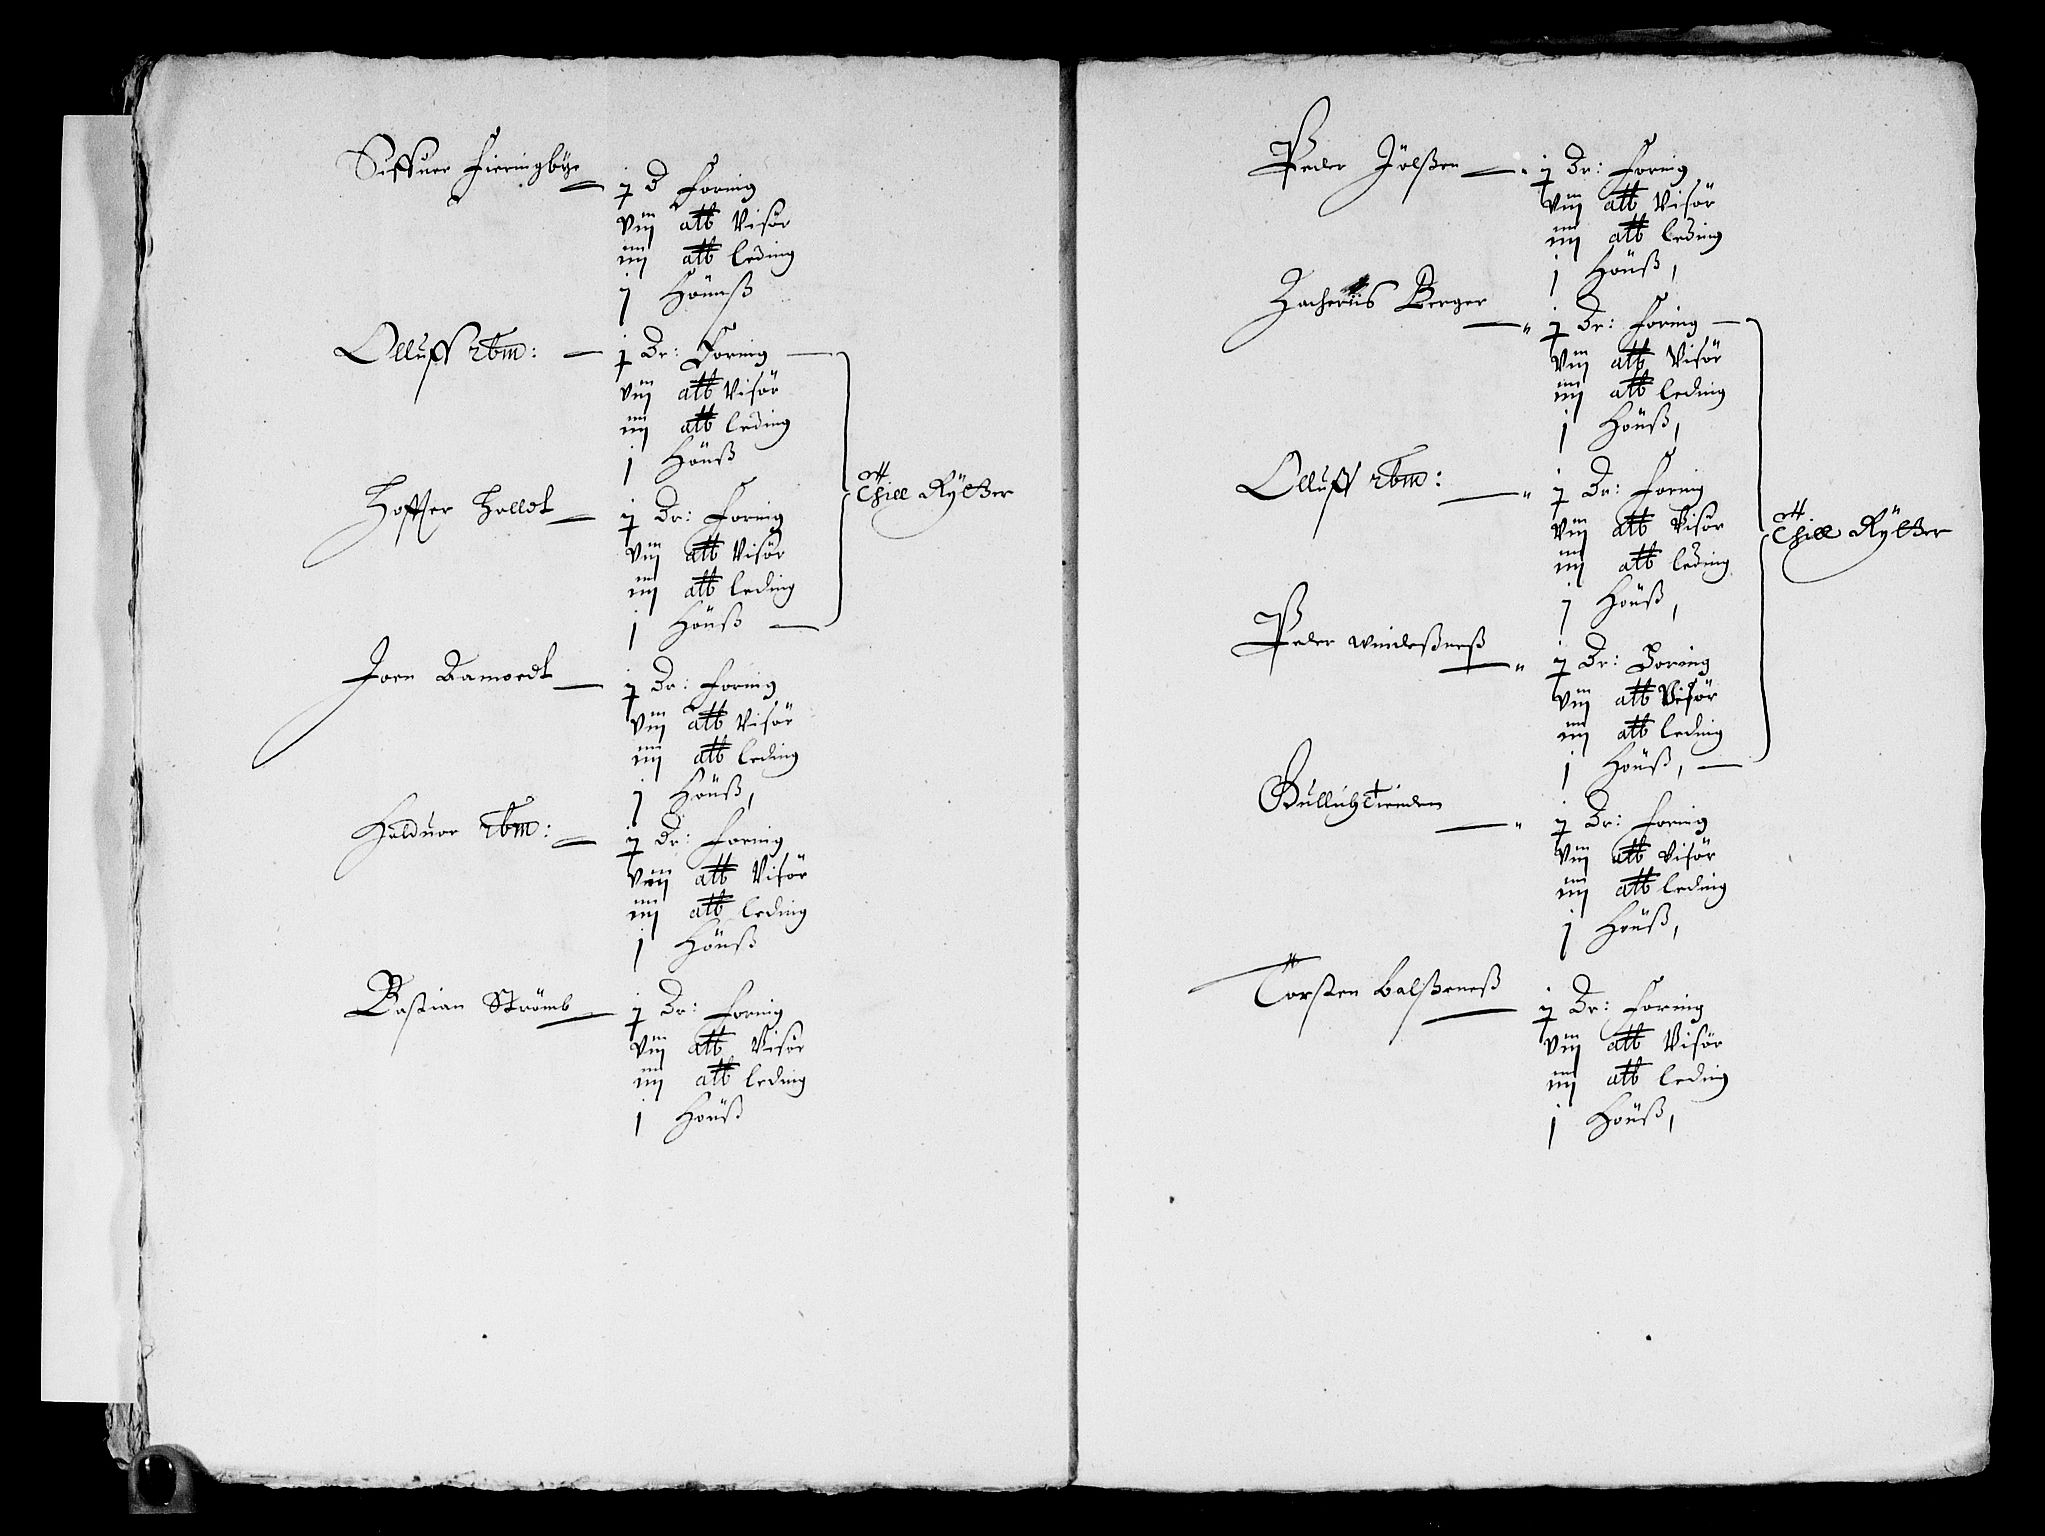 Siffuer Fieringbÿe j D Foring
viij att Visör
iiij att leding
j Höünß
Olluff ibm: j Dr: Foring
viij att Visör
iiij att leding
j Höüß
Hoffter Holldt j Dr: Foring
viij att Visör
iiij att leding
j Höüß
Thill Rÿtter
Joen Damoedt j Dr: Foring
viij att Visör
iiij att leding
j Höüß,
Halduor ibm: j Dr: Foring
viij att Visör
iiij att leding
j Höüß
Bastian Strömb j Dr: Foring
viij att Visör
iiij att leding
j Höüß
Peder Jölßen j Dr: Foring
viij att Visör
iiij att leding
j Höüß,
Zacheriis Berger j Dr: Foring
viij att Visör
iiij att leding
j Höüß,
Olluff ibm: j Dr: Foring
viij att Visör
iiij att leding
j Höüß,
Thill Rÿtter
Peder windeßneß j Dr: Foring
viij att Visör
iiij att leding
j Höüß,
Gullich Tienden j Dr: Foring
viij att Visör
iiij att leding
j Höüß,
Torsten balßeneß j Dr: Foring
viij att Visör
iiij att leding
j Höüß,